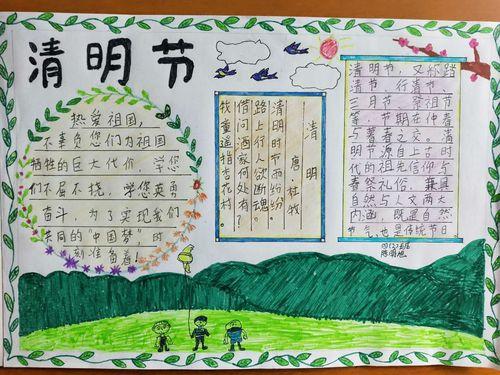 清明节
热爱祖国，
不辜负您们为祖国
牺牲的巨大代价
学您
们不屈不挠，学您英勇
奋斗，为了实现我们
共同的“中国梦”时
刻准备着！
清明
唐 杜牧
清明时节雨纷纷，
路上行人欲断魂。
借问酒家何处有？
牧童遥指杏花村。
清明节，又称踏
青节、行清节、
三月节、祭祖节
等，节期在仲春
与暮春之交。清
明节源自上古时
代的祖先信仰与
春祭礼俗，兼具
自然与人文两大
内涵，既是自然
节气，也是传统节日